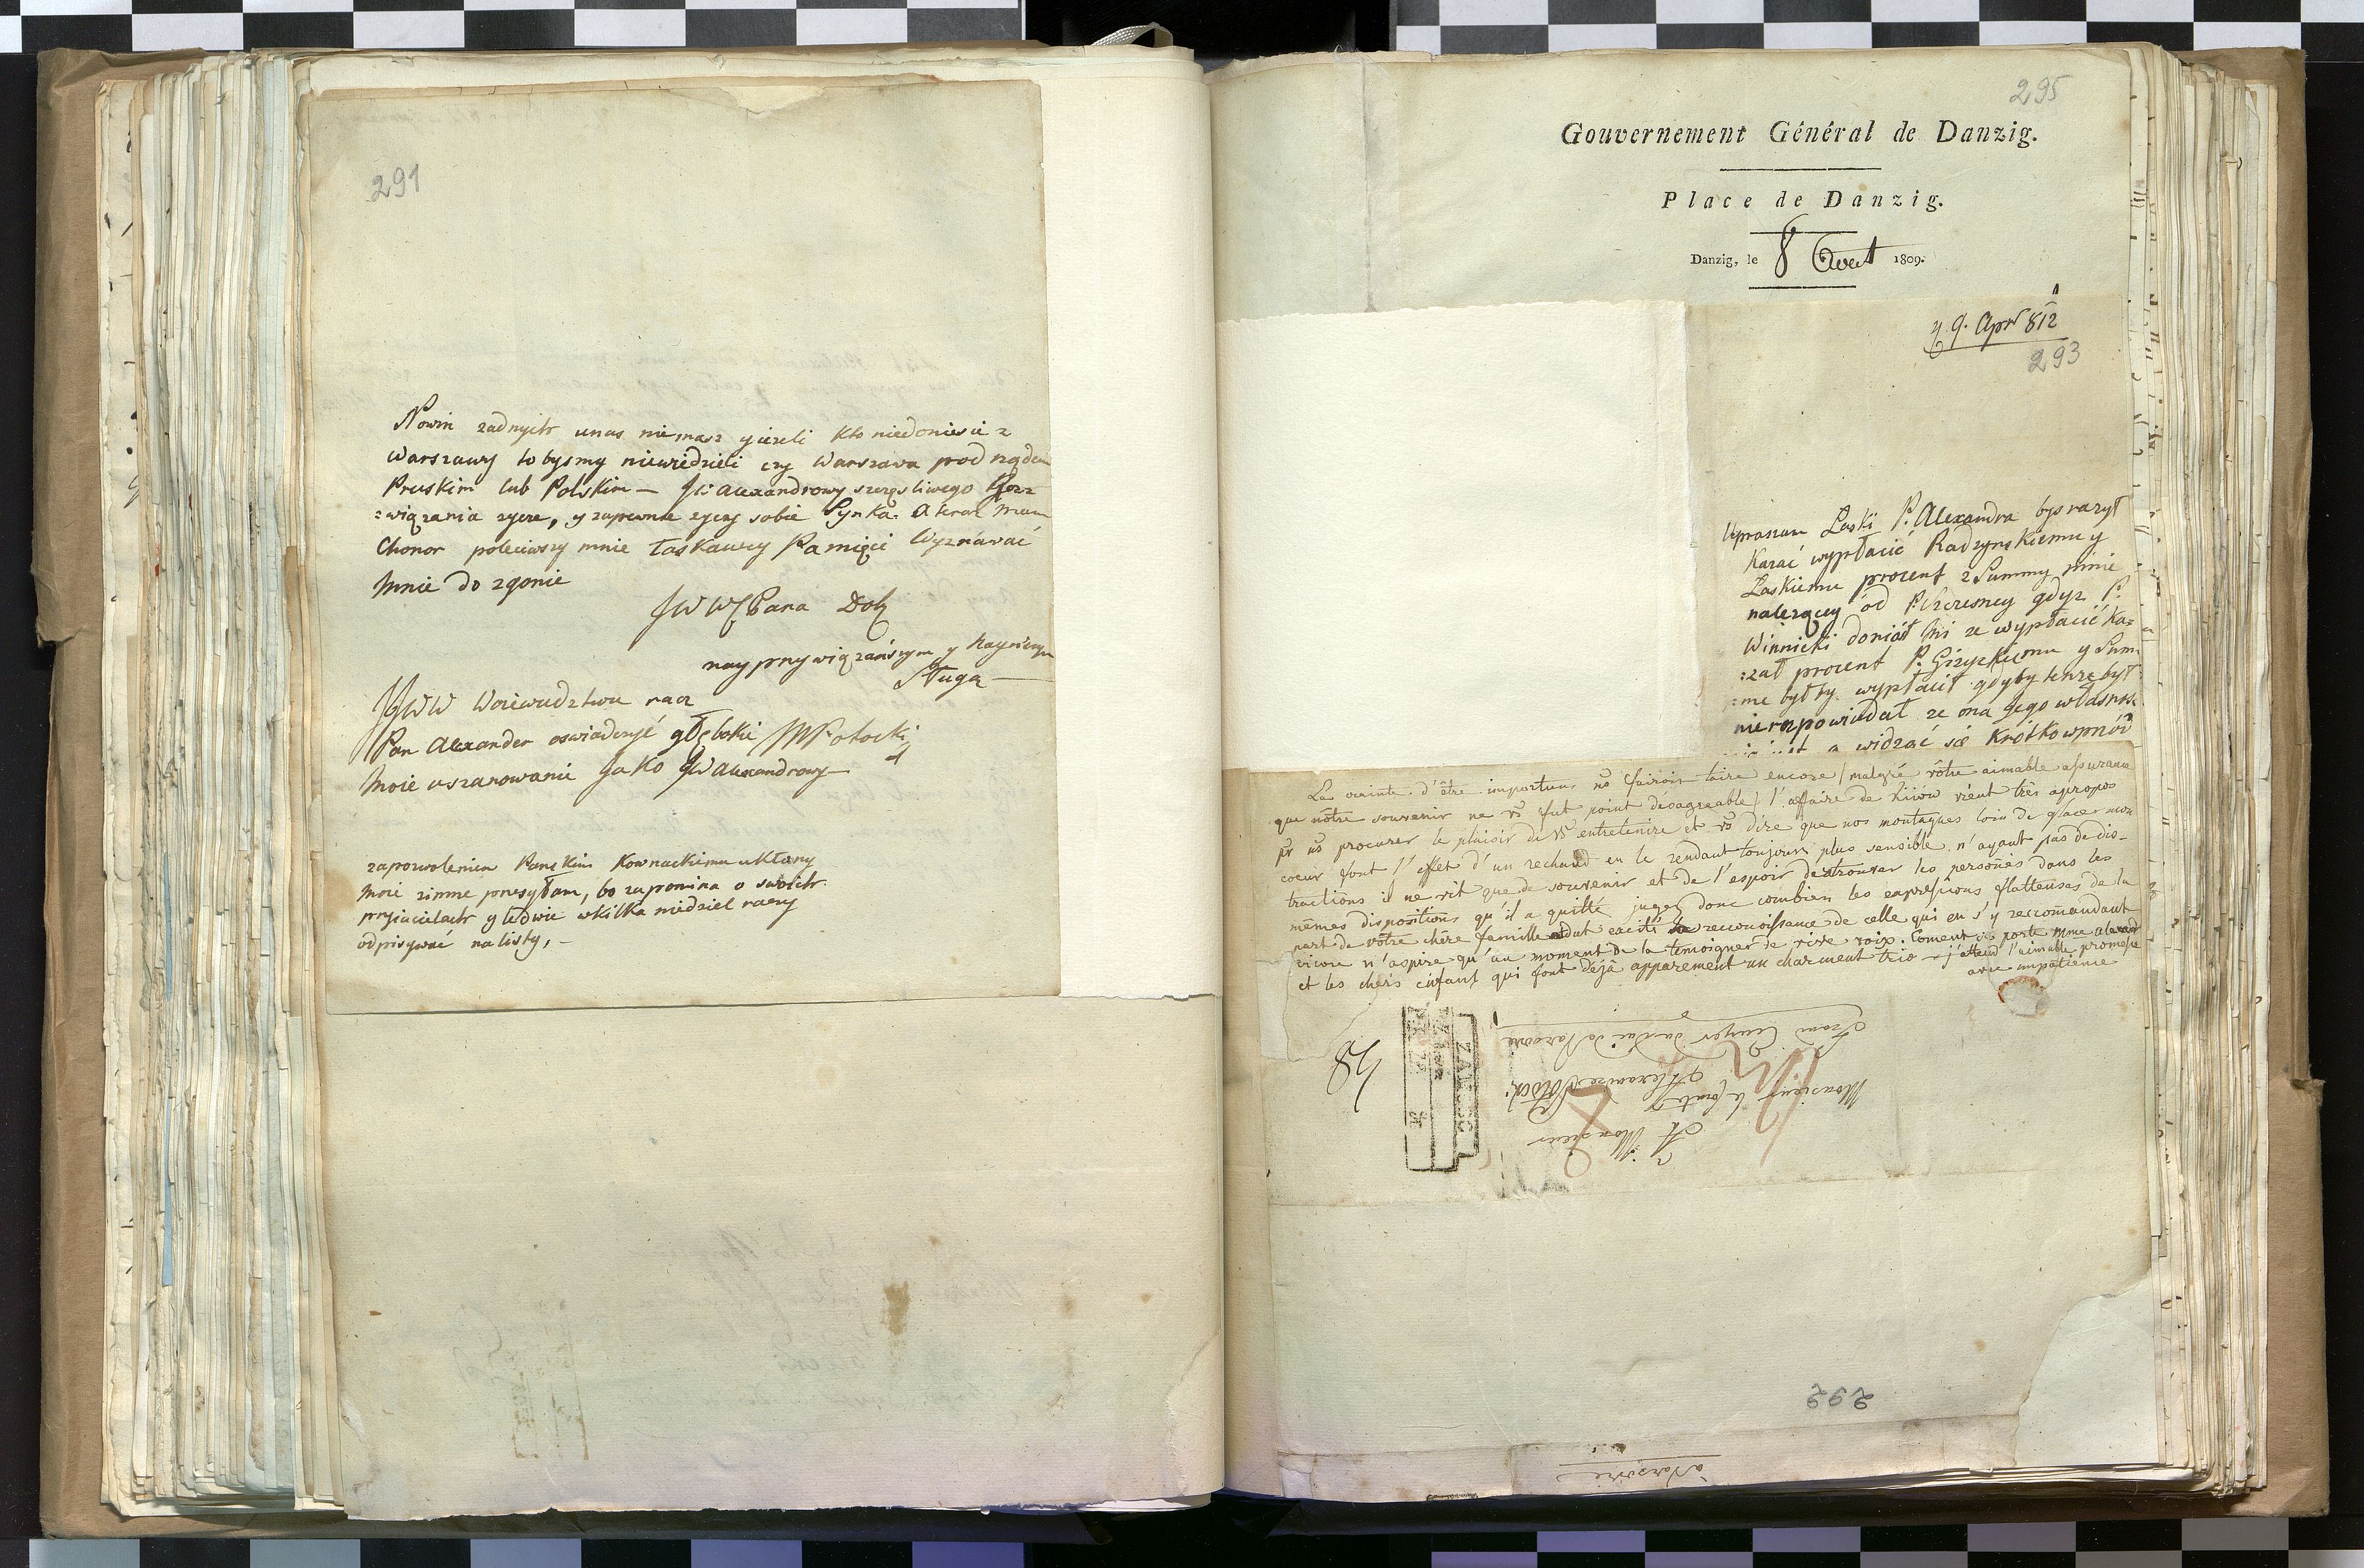 291
Nowin zadnych unas niemasz yiezeli kto niedoniesie z
Warszawy tobysmy niewiedzieli czy Warszawa pod rządem
Pruskim lub Polskim — JW Alexandrowy szczęsliwego Roz=
=wiązania zycze, y zapewne zyczy sobie Synka. A teraz mam
Chonor poleciwszy mnie łaskawey Pamięci Wyznawać
mnie do zgonie
JWW Pana Dob
nayprzywiązańszym y
Sługa —
JWW Woiewodztwu racz
Pan Alexander oswiadczyć głębokie MPotocki
moie uszanowanie jako JW Alexandrowy —
zapozwoleniem Panskim Kownackiemu ukłony
moie zimne przesyłam, bo zapomina o swoich
przyiacielach y ledwie wkilka niedziel raczy
odpisywać nalisty, —
295
Gouvernement Général de Danzig.
Place de Danzig.
Danzig, le 8 Aout 1809.
9. Apr 812
293
Upraszam Łaski P. Alexandra bys raczył
Kazać wypłacić Radzynskiemu y
Laskiemu procent z Summy mnie
nalezącey od P. Szczesney gdyz P.
Winnicki doniósł mi ze wypłacić Ka=
=zał procent P. Gizyckiemu y Sum=
=me byłby wypłacił gdyby tenze był
nierozpowiedał ze ona Jego własna
a widzać sie krótko wprzód
La crainte d'être importuns ns fairoit taire encore / malgré vôtre aimable assurance
que nôtre souvenir ne vs fut point désagreable / l'affaire de Kiiow vient très apropos
pr ns procurer le plaisir de vs entretenire et vs dire que nos montagues loin de glacer mon
coeur font l'effet d'un rechaud en le rendant toujours plus sensible n'ayant pas de dis-
tractions il ne vit que de souvenir et de l'espoir de retrouver les personnes dans les
mêmes dispositions qu'il a quitté jugez donc combien les expressions flatteuses de la
part de vôtre chère famille a dut excité la reconoissance de celle qui en s'y recomandant
encore n'aspire qu'au moment de la temoigner de vive voix. Coment se porte Mme Alexand
et les chers enfant qui font déjà apparement un charment trio — j'attend l'aimable promesse
avec impatience
A Monsieur
Monsieur le Comte
Alexandre Potocki
Grand Ecuyer du duc de Varsovie
ZAMOSC
58
292
à Varsovie